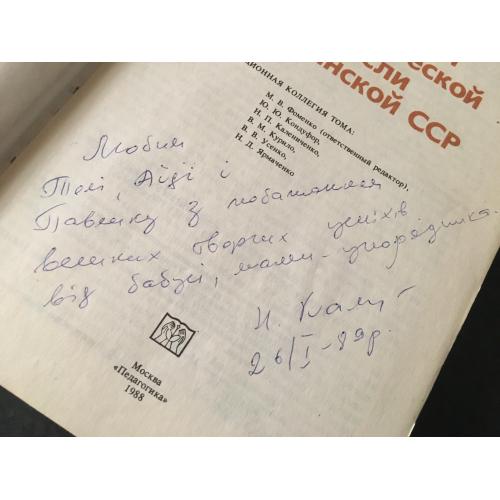 ческой
сли
нской ССР
ционная коллегия тома:
М. В. Фоменко (ответственный редактор),
Ю. Ю. Кондуфор,
Н. П. Калениченко,
В. М. Курило,
В. В. Усенко,
Н. Д. Ярмаченко
Любим
Толі, Аїді і
Павлику з побажанням
великих творчих успіхів
від бабусі, мами-упорядника
Н. Кал
26/I-89р.
Москва
«Педагогика»
1988